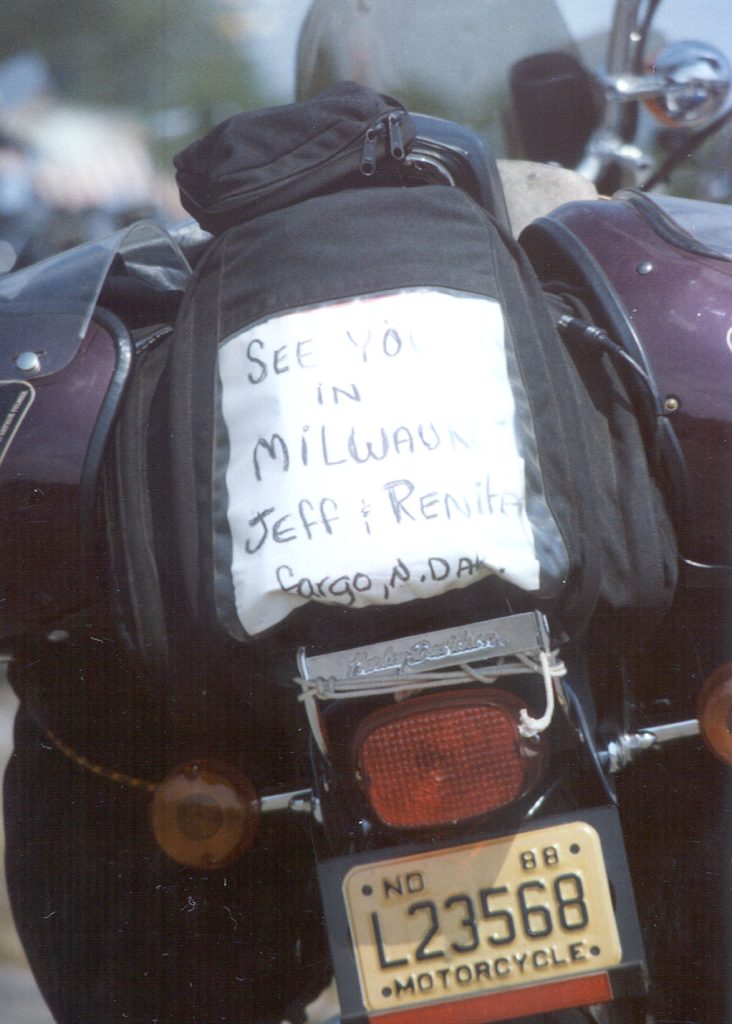 SEE YO
iN
MiLWAUK
JEFF & RENitA
fargo, N. DAK.
Harley-Davidson
ND 88
L23568
MOTORCYCLE